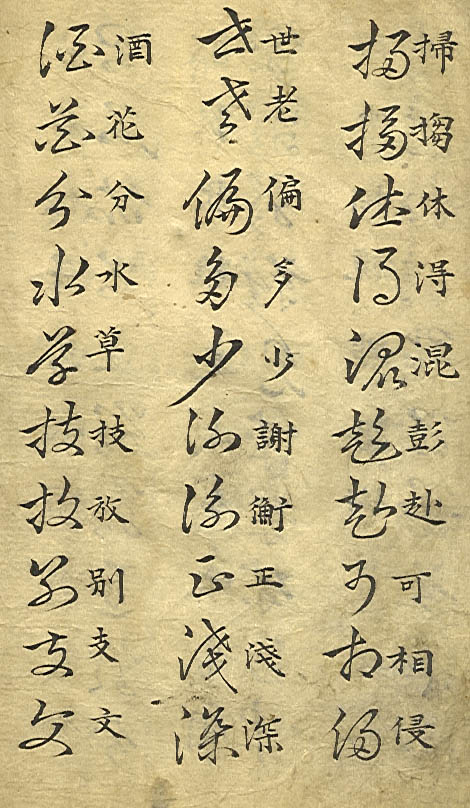 掃搊休淂混彭赴可相侵
世老偏多少謝衡正淺深
酒花分水草技放别支文